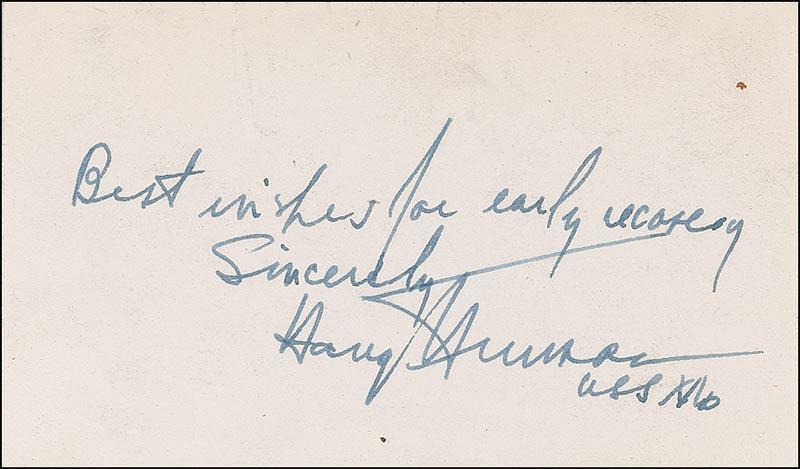 Best wishes for early recovery
Sincerely
Harry Truman